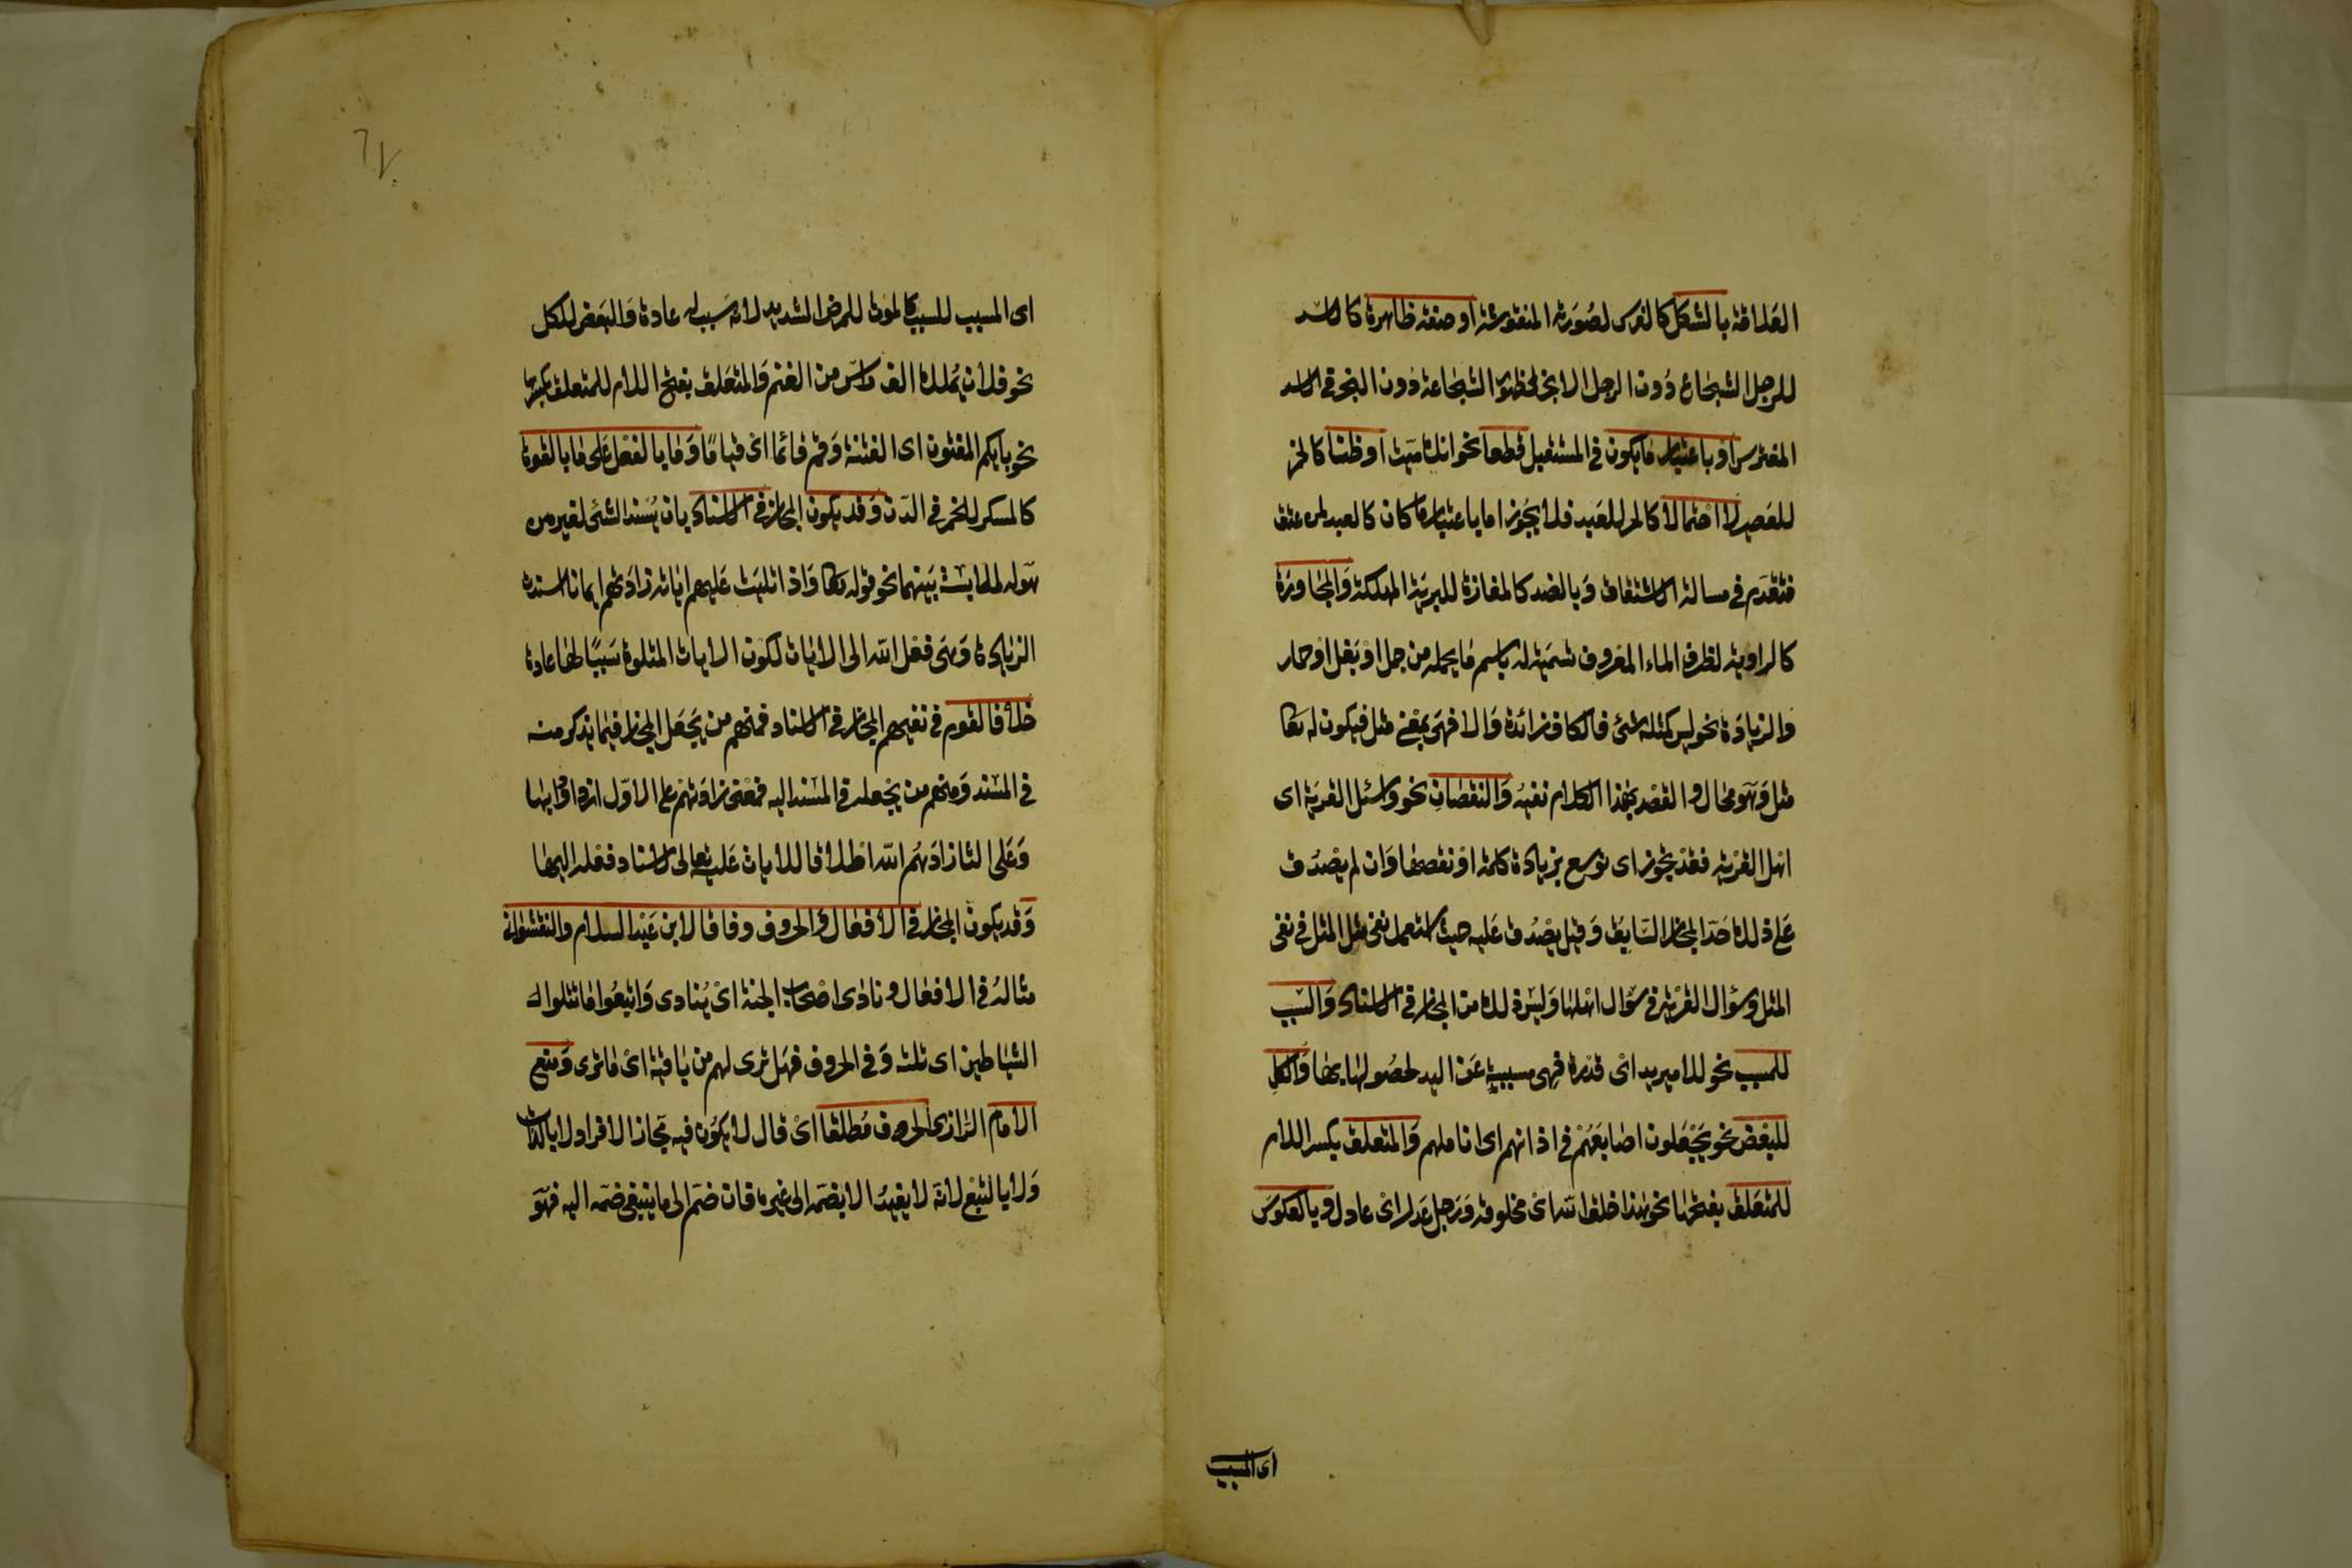 العلاقة بالشكل كالفرس لصورته المنقوشة او صفة ظاهرة كالاسد
للرجل الشجاع دون الرجل الابخر لظهور الشجاعة دون البخر في الاسد
المفترس او باعتبار ما يكون في المستقبل قطعا نحو انك ميت او ظنا كالخمر
للعصير لا احتمالا كالحر للعبد فلا يجوز اما باعتبار ما كان كالعبد لمن عتق
فتقدم في مسالة الاشتقاق وبالضد كالمفازة للبرية المهلكة والمجاورة
كالراوية لظرف الماء المعروف تسمية له باسم ما يحمله من جمل او بغل او حمار
والزيادة نحو ليس كمثله شئ فالكاف زائدة والا فهي بمعنى مثل فيكون له تعا
مثل وهو محال والقصد بهذا الكلام نفيه والنقصان نحو واسئل القرية اى
اهل القرية فقد تجوز اى توسع بزيادة كلمة او نقصها وان لم يصدق
على ذلك حد المجاز السابق وقيل يصدق عليه حيث استعمل نفى مثل المثل في نفى
المثل وسؤال القرية في سؤال اهلها وليس ذلك من المجاز في الاسناد والسبب
للمسبب نحو للامير يد اى قدرة فهى مسببة عن اليد لحصولها بها والكل
للبعض نحو يجعلون اصابعهم في اذانهم اى اناملهم والمتعلق بكسر اللام
للمتعلق بفتحها نحو هذا خلق الله اى مخلوقه ورجل عدل اى عادل وبالعكوس
اى المسبب
اى المسبب للسبب كالموت للمرض الشديد لانه سبب له عادة والبعض للكل
نحو فلان يملك الف راس من الغنم والمتعلق بفتح اللام للمتعلق بكسرها
نحو بايكم المفتون اى الفتنة وقم قائما اى قياما وما بالفعل على ما بالقوة
كالمسكر للخمر في الدن وقد يكون المجاز في الاسناد بان يسند الشئ لغير من
هو له لملابسة بينهما نحو قوله تعا واذا تليت عليهم اياته زادتهم ايمانا اسندت
الزيادة وهى فعل الله الى الايات لكون الايات المتلوة سببا لها عادة
خلافا لقوم في نفيهم المجاز في الاسناد فمنهم من يجعل المجاز فيما يذكر منه
في المسند ومنهم من يجعله في المسند اليه فمعنى زادتهم على الاول ازدادوا بها
وعلى الثا زادهم الله اطلاقا للايات عليه تعالى لاسناد فعله اليها
وقد يكون المجاز في الافعال والحروف وفاقا لابن عبد السلام والنقشوانى
مثاله في الافعال ونادى اصحاب الجنة اى ينادى واتبعوا ما تتلوا
الشياطين اى تلته وفي الحروف فهل ترى لهم من باقية اى ما ترى ومنع
الامام الرازى الحروف مطلقا اى قال لا يكون فيه مجاز الافراد لا بالذات
ولا بالتبع لانه لا يفيد الا بضمه الى غيره فان ضم الى ما ينبغى ضمه اليه فهو